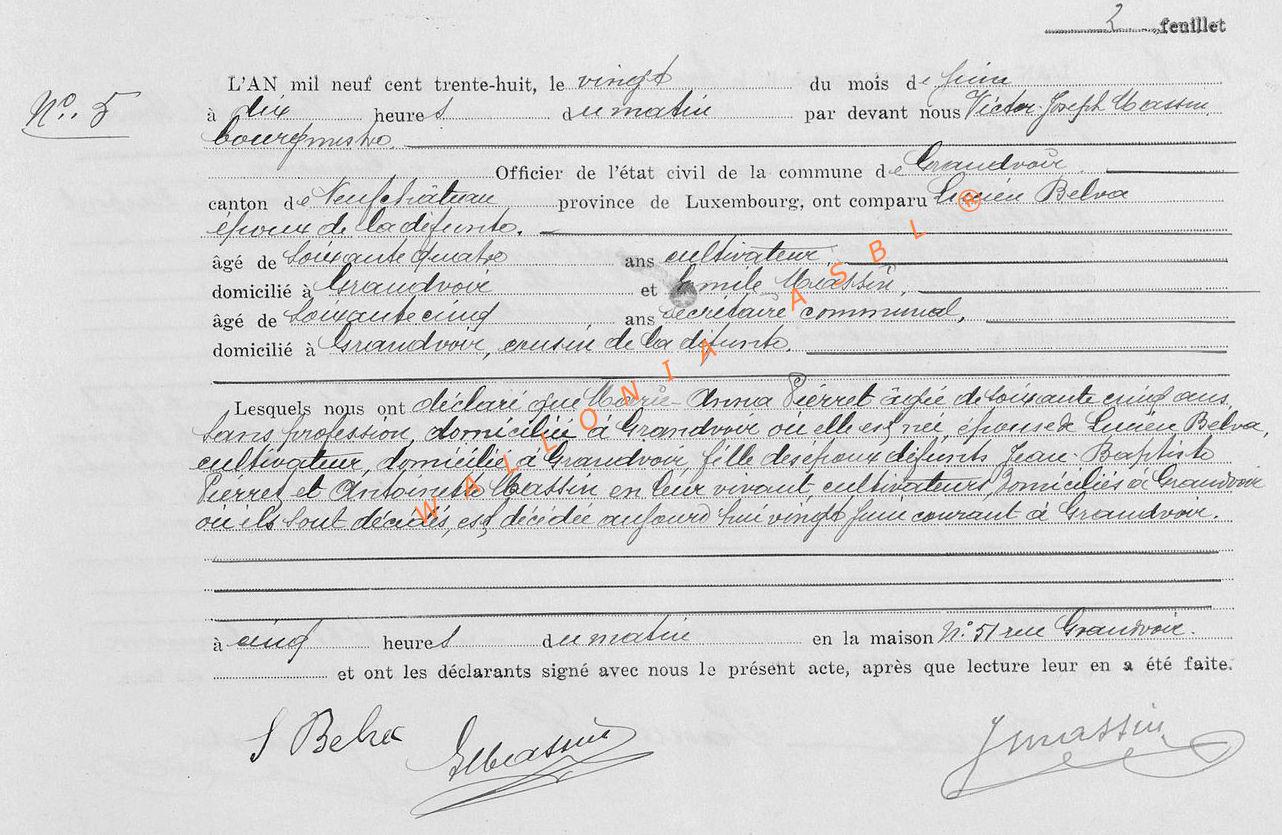 2 feuillet
L'AN mil neuf cent trente-huit, le vingt du mois de juin
N° 5
à dix heures du matin par devant nous Victor Joseph Massin,
bourgmestre.
Officier de l'état civil de la commune de Grandvoir
canton de Neufchâteau province de Luxembourg, ont comparu Lucien Belva
époux de la défunte.
âgé de soixante quatre ans cultivateur,
domicilié à Grandvoir et Emile Massin,
âgé de soixante cinq ans secrétaire communal,
domicilié à Grandvoir, cousin de la défunte.
Lesquels nous ont déclaré que Marie-Anna Pierret âgée de soixante cinq ans,
sans profession, domiciliée à Grandvoir où elle est née, épouse de Lucien Belva,
cultivateur, domicilié à Grandvoir, fille des époux défunts Jean-Baptiste
Pierret et Antoinette Massin en leur vivant cultivateurs domiciliés à Grandvoir
où ils sont décédés, est décédée aujourd'hui vingt juin courant à Grandvoir.
à cinq heures du matin en la maison N° 51 rue Grandvoir.
et ont les déclarants signé avec nous le présent acte, après que lecture leur en a été faite.
Belva EMassin JMassin
WALLONIA ASBL ®